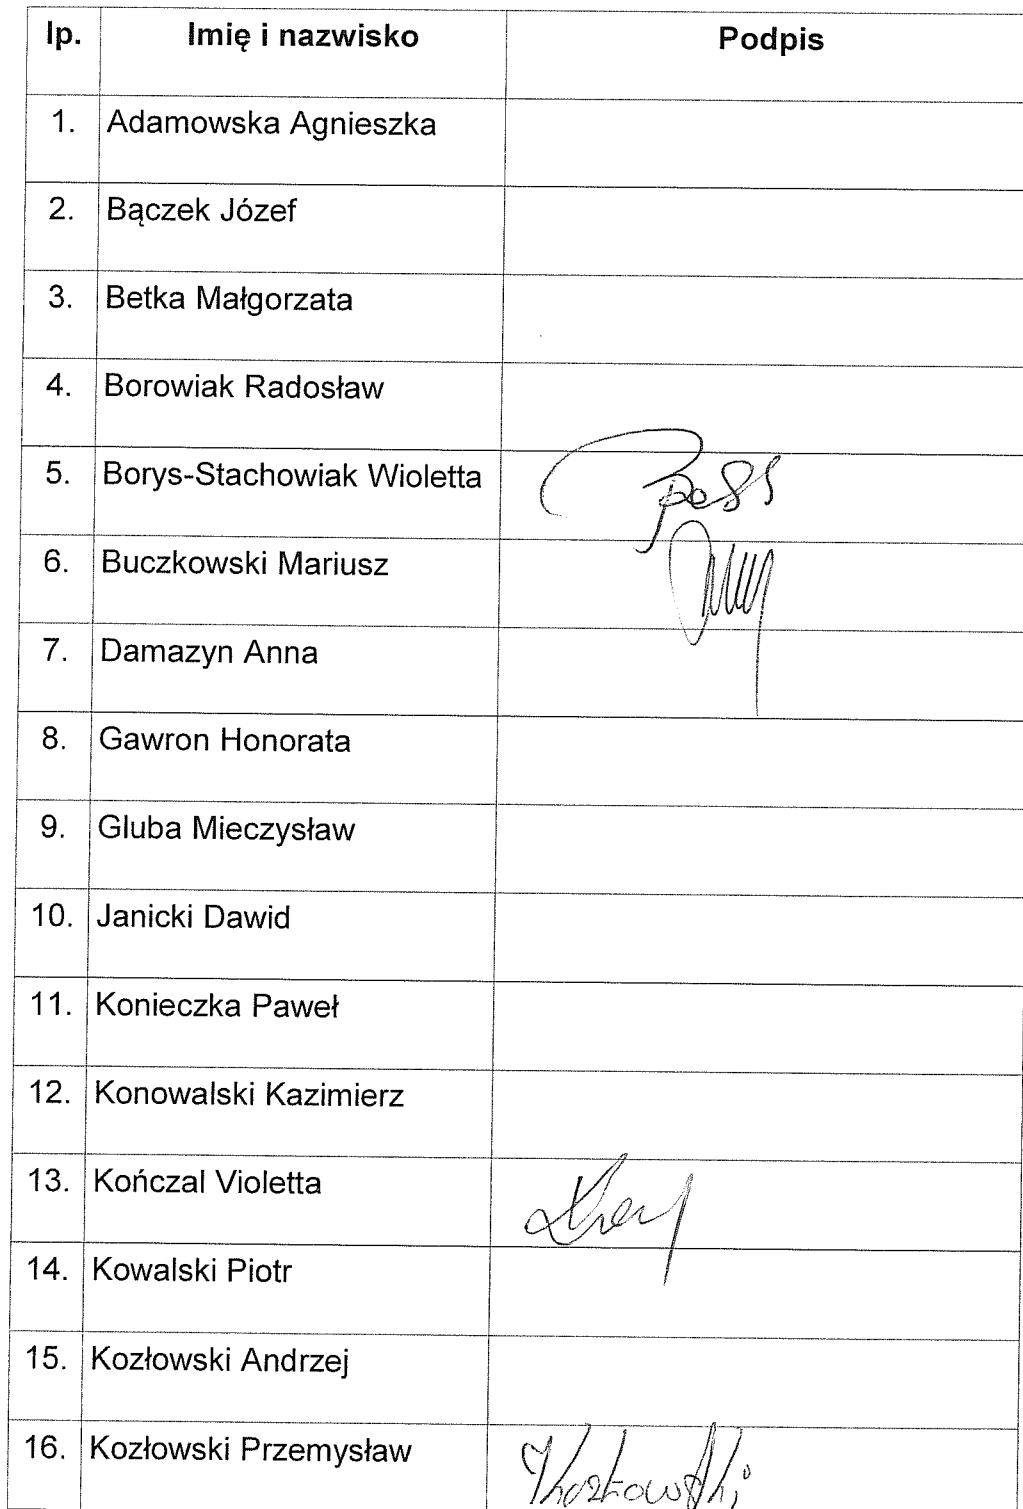 lp. Imię i nazwisko Podpis
1. Adamowska Agnieszka
2. Bączek Józef
3. Betka Małgorzata
4. Borowiak Radosław
5. Borys-Stachowiak Wioletta
6. Buczkowski Mariusz
7. Damazyn Anna
8. Gawron Honorata
9. Gluba Mieczysław
10. Janicki Dawid
11. Konieczka Paweł
12. Konowalski Kazimierz
13. Kończal Violetta
14. Kowalski Piotr
15. Kozłowski Andrzej
16. Kozłowski Przemysław Kozłowski